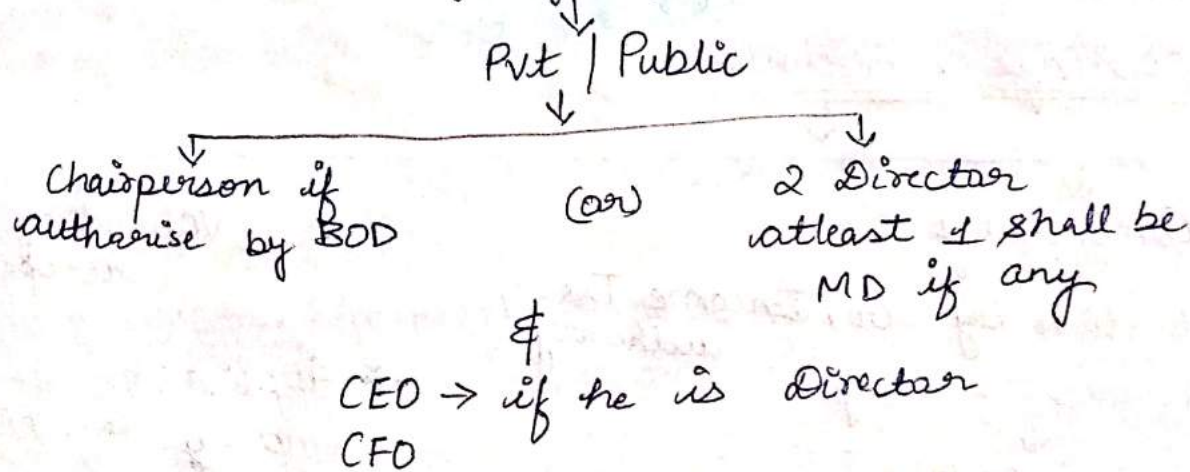 Pvt | Public
Chairperson if
authorise by BOD
(or)
2 Director
atleast 1 shall be
MD if any
&
CEO → if he is Director
CFO